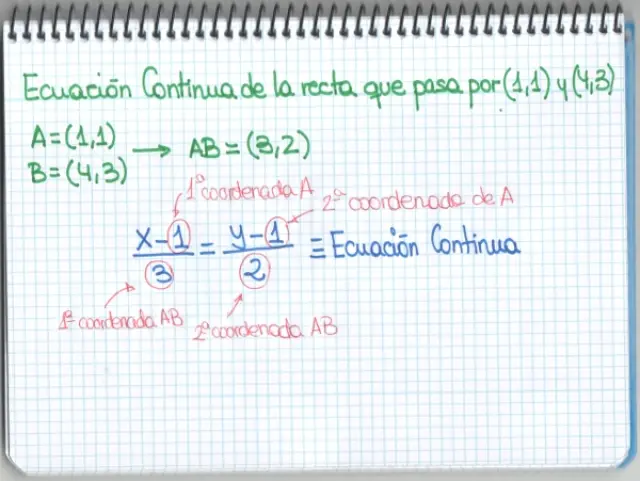 Ecuación Continua de la recta que pasa por (1,1) y (4,3)
A=(1,1)
B=(4,3) → AB=(3,2)
1ª coordenada A
2ª coordenada de A
x-1/3 = y-1/2 ≡ Ecuación Continua
1ª coordenada AB
2ª coordenada AB